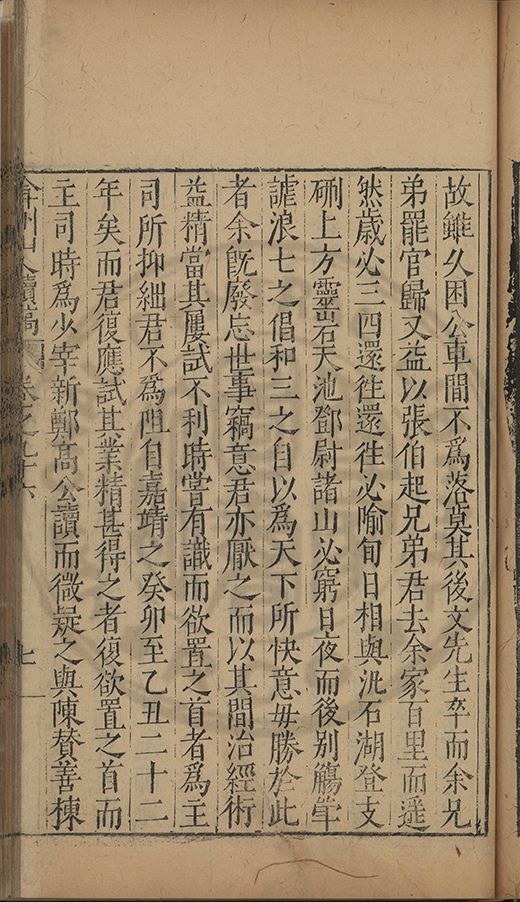 故雖久困公車間不爲落莫其後文先生卒而余兄
弟罷官歸又益以張伯起兄弟君去余家百里而遥
然歳必三四還往還往必喻旬日相與汎石湖登支
硎上方靈岩天池鄧尉諸山必窮日夜而後别觴筆
謔浪七之倡和三之自以爲天下所快意毋勝於此
者余旣廢忘世事竊意君亦厭之而以其間治經術
益精當其屢試不利時嘗有識而欲置之首者爲主
司所抑絀君不爲阻自嘉靖之癸卯至乙丑二十二
年矣而君復應試其業精甚得之者復欲置之首而
主司時爲少宰新鄭髙公讀而微疑之與陳賛善棟
弇州山人續稿 卷之九十六 七